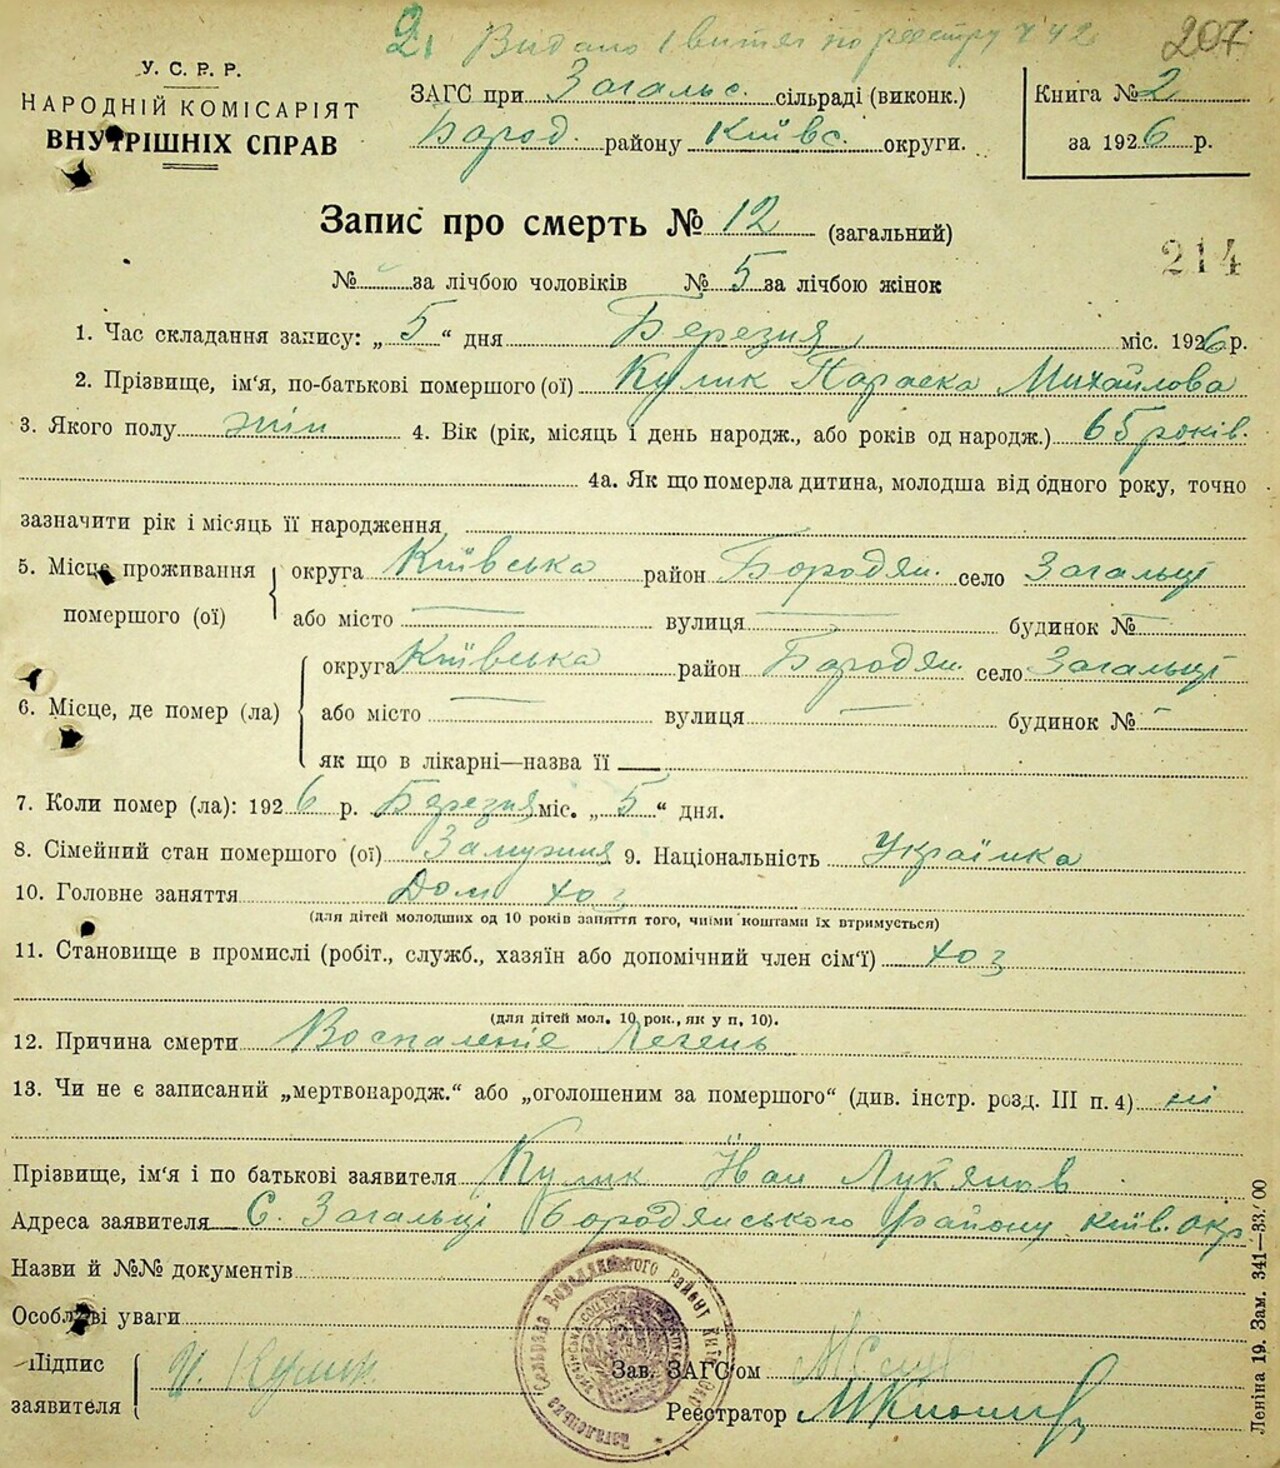 2, Видано 1 витяг по реєстру № 42 207
У. С. Р. Р.
НАРОДНІЙ КОМІСАРІЯТ
ВНУТРІШНІХ СПРАВ
ЗАГС при Загальс. сільраді (виконк.)
Бород. району Київс. округи.
Книга № 2
за 1926 р.
Запис про смерть № 12 (загальний)
214
№ за лічбою чоловіків № 5 за лічбою жінок
1. Час складання запису: „ 5 “ дня Березня міс. 1926 р.
2. Прізвище, ім'я, по-батькові помершого (ої) Кулик Параска Михайлова
3. Якого полу жін 4. Вік (рік, місяць і день народж., або років од народж.) 65 років.
4а. Як що померла дитина, молодша від одного року, точно
зазначити рік і місяць її народження
5. Місце проживання помершого (ої) округа Київська район Бородян. село Загальці
або місто — вулиця — будинок № —
6. Місце, де помер (ла) округа Київська район Бородян. село Загальці
або місто — вулиця — будинок № —
як що в лікарні—назва її —
7. Коли помер (ла): 1926 р. Березня міс. „ 5 “ дня.
8. Сімейний стан помершого (ої) Замужня 9. Національність Українка
10. Головне заняття Дом хоз
(для дітей молодших од 10 років заняття того, чиїми коштами їх втримується)
11. Становище в промислі (робіт., служб., хазяїн або допомічний член сім'ї) хоз
(для дітей мол. 10 рок., як у п. 10).
12. Причина смерти Воспаленіе Легень
13. Чи не є записаний „мертвонародж.“ або „оголошеним за помершого“ (див. інстр. розд. III п. 4) ні
Прізвище, ім'я і по батькові заявителя Кулик Іван Лук'янов
Адреса заявителя С. Загальці Бородянського району Київ. окр
Назви й №№ документів
Особливі уваги
Підпис заявителя И. Кулик
Зав. ЗАГС'ом
Реєстратор
Леніна 19. Зам. 341—33.000